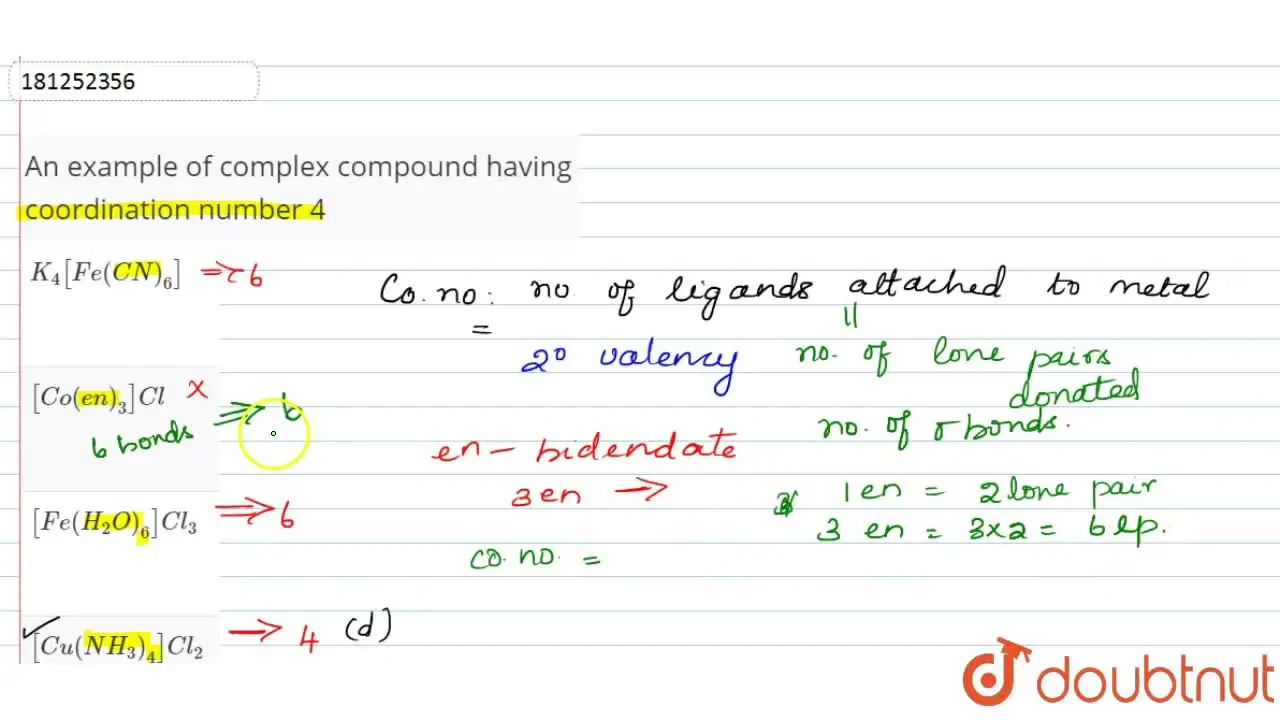 181252356
An example of complex compound having
coordination number 4
K₄[Fe(CN)₆] ⇒ 6
Co. no: no of ligands attached to metal
=
||
2° valency no. of lone pairs
donated
[Co(en)₃]Cl x ⇒ 6
6 bonds
no. of σ bonds.
en - bidendate
3 en →
1 en = 2 lone pair
3 en = 3x2 = 6 lp.
[Fe(H₂O)₆]Cl₃ ⇒ 6
co. no. =
✓ [Cu(NH₃)₄]Cl₂ → 4 (d)
doubtnut